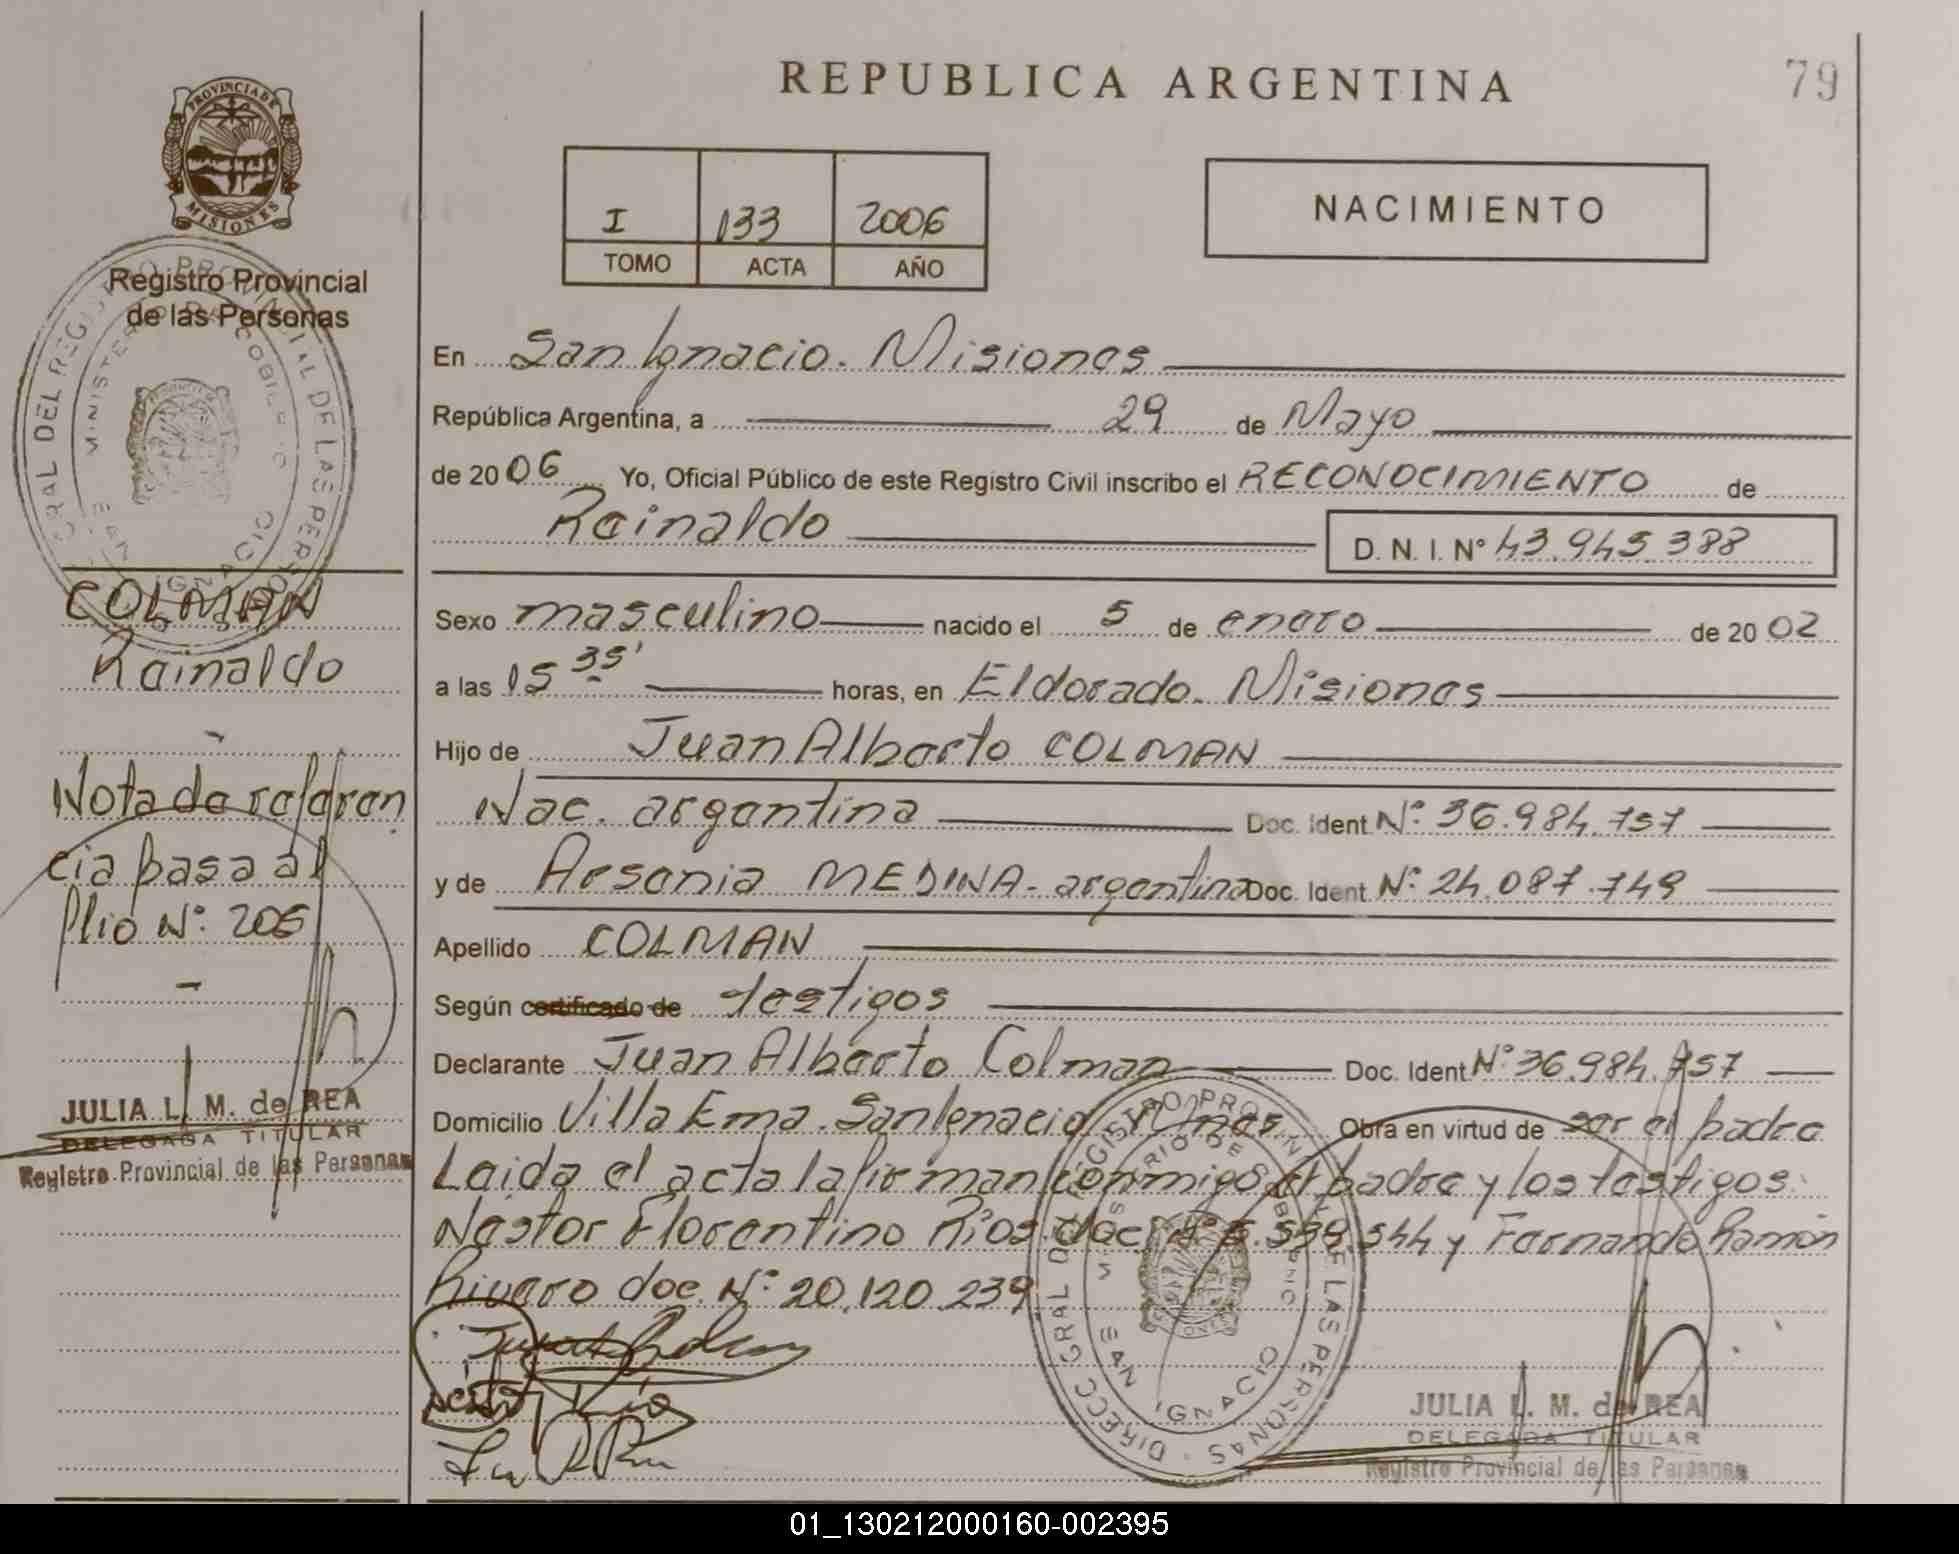 REPUBLICA ARGENTINA
79
PROVINCIA DE
MISIONES
Registro Provincial
de las Personas
I 133 2006
TOMO ACTA AÑO
NACIMIENTO
En San Ignacio. Misiones
República Argentina, a 29 de Mayo
de 2006 Yo, Oficial Público de este Registro Civil inscribo el RECONOCIMIENTO de
Reinaldo
D. N. I. N° 43.945.388
COLMAN
Reinaldo
Nota de referen
cia pasa al
folio N°: 206
JULIA L. M. de REA
DELEGADA TITULAR
Registro Provincial de las Personas
Sexo masculino nacido el 5 de enero de 2002
a las 15 35' horas, en Eldorado. Misiones
Hijo de Juan Alberto COLMAN
Nac. argentina Doc. Ident. N°: 36.984.757
y de Arsenia MEDINA - argentina Doc. Ident. N°: 24.087.749
Apellido COLMAN
Según certificado de testigos
Declarante Juan Alberto Colman Doc. Ident N° 36.984.757
Domicilio Villa Ema. San Ignacio Mnes Obra en virtud de ser el padre
Leida el acta la firman conmigo el padre y los testigos:
Nestor Florentino Rios doc. N° 544 y Fernando Ramón
Rivero doc. N°: 20.120.239
DIRECC GRAL DEL REGISTRO PROVINCIAL DE LAS PERSONAS
MINISTERIO DE GOBIERNO
SAN IGNACIO
JULIA L. M. de REA
DELEGADA TITULAR
Registro Provincial de las Personas
01_130212000160-002395